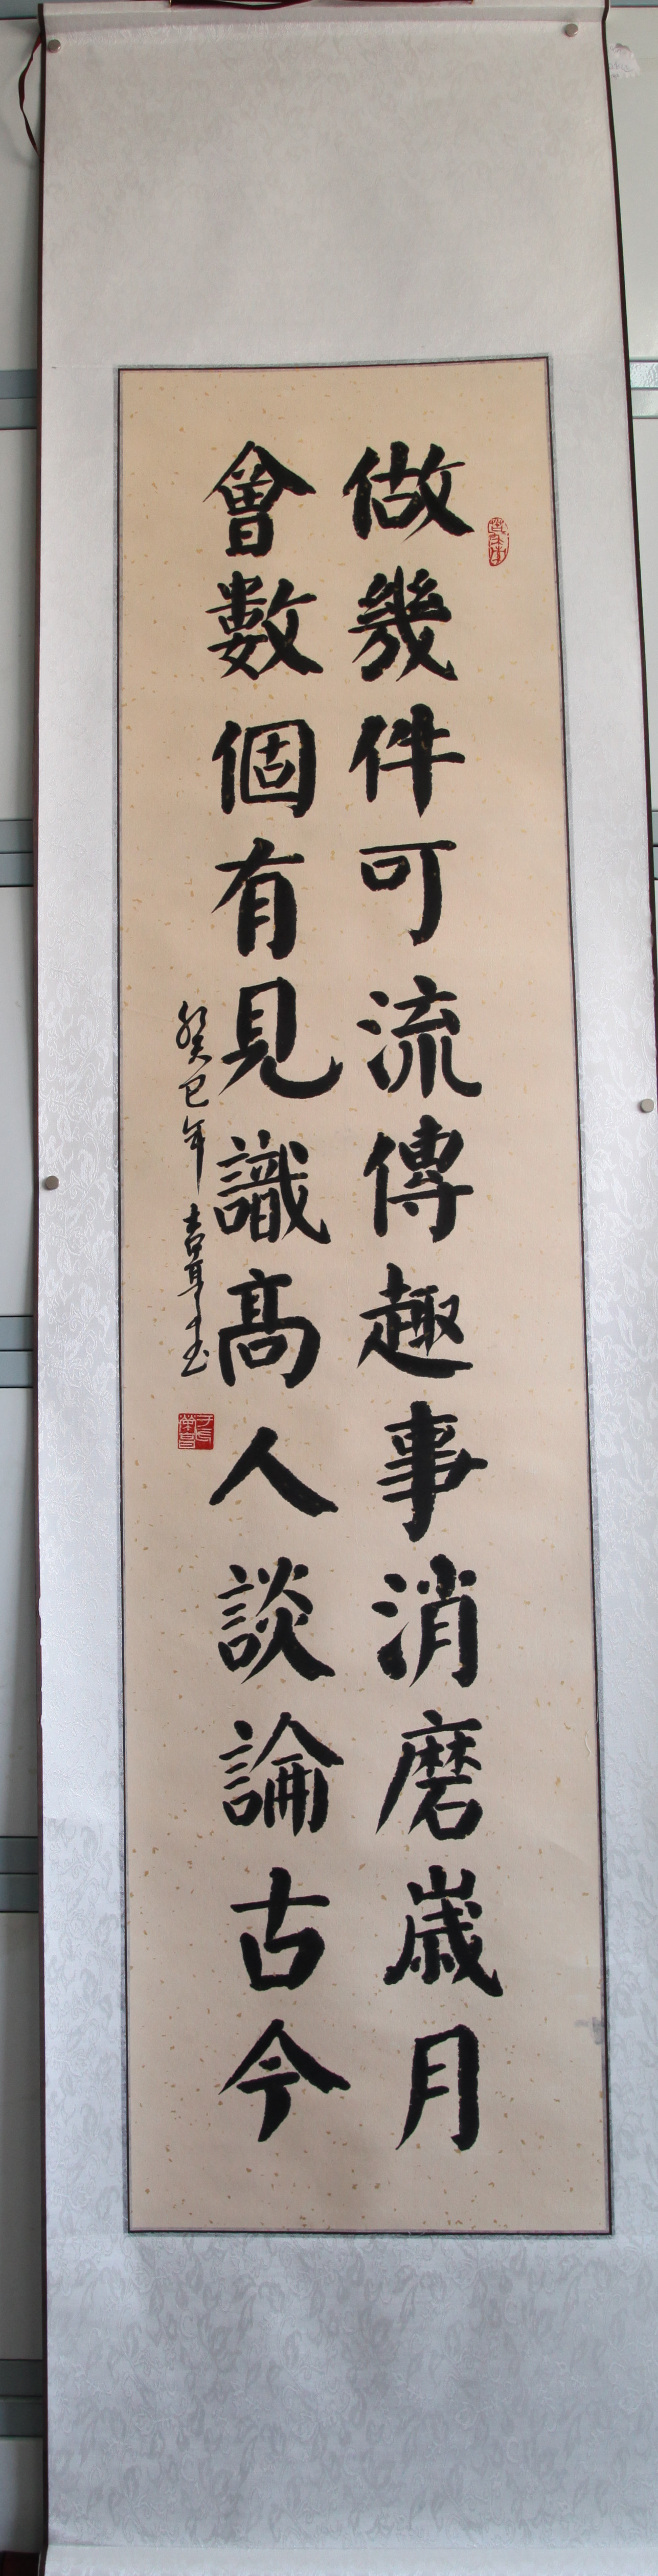 做幾件可流傳趣事消磨歲月
會數個有見識高人談論古今
癸巳年